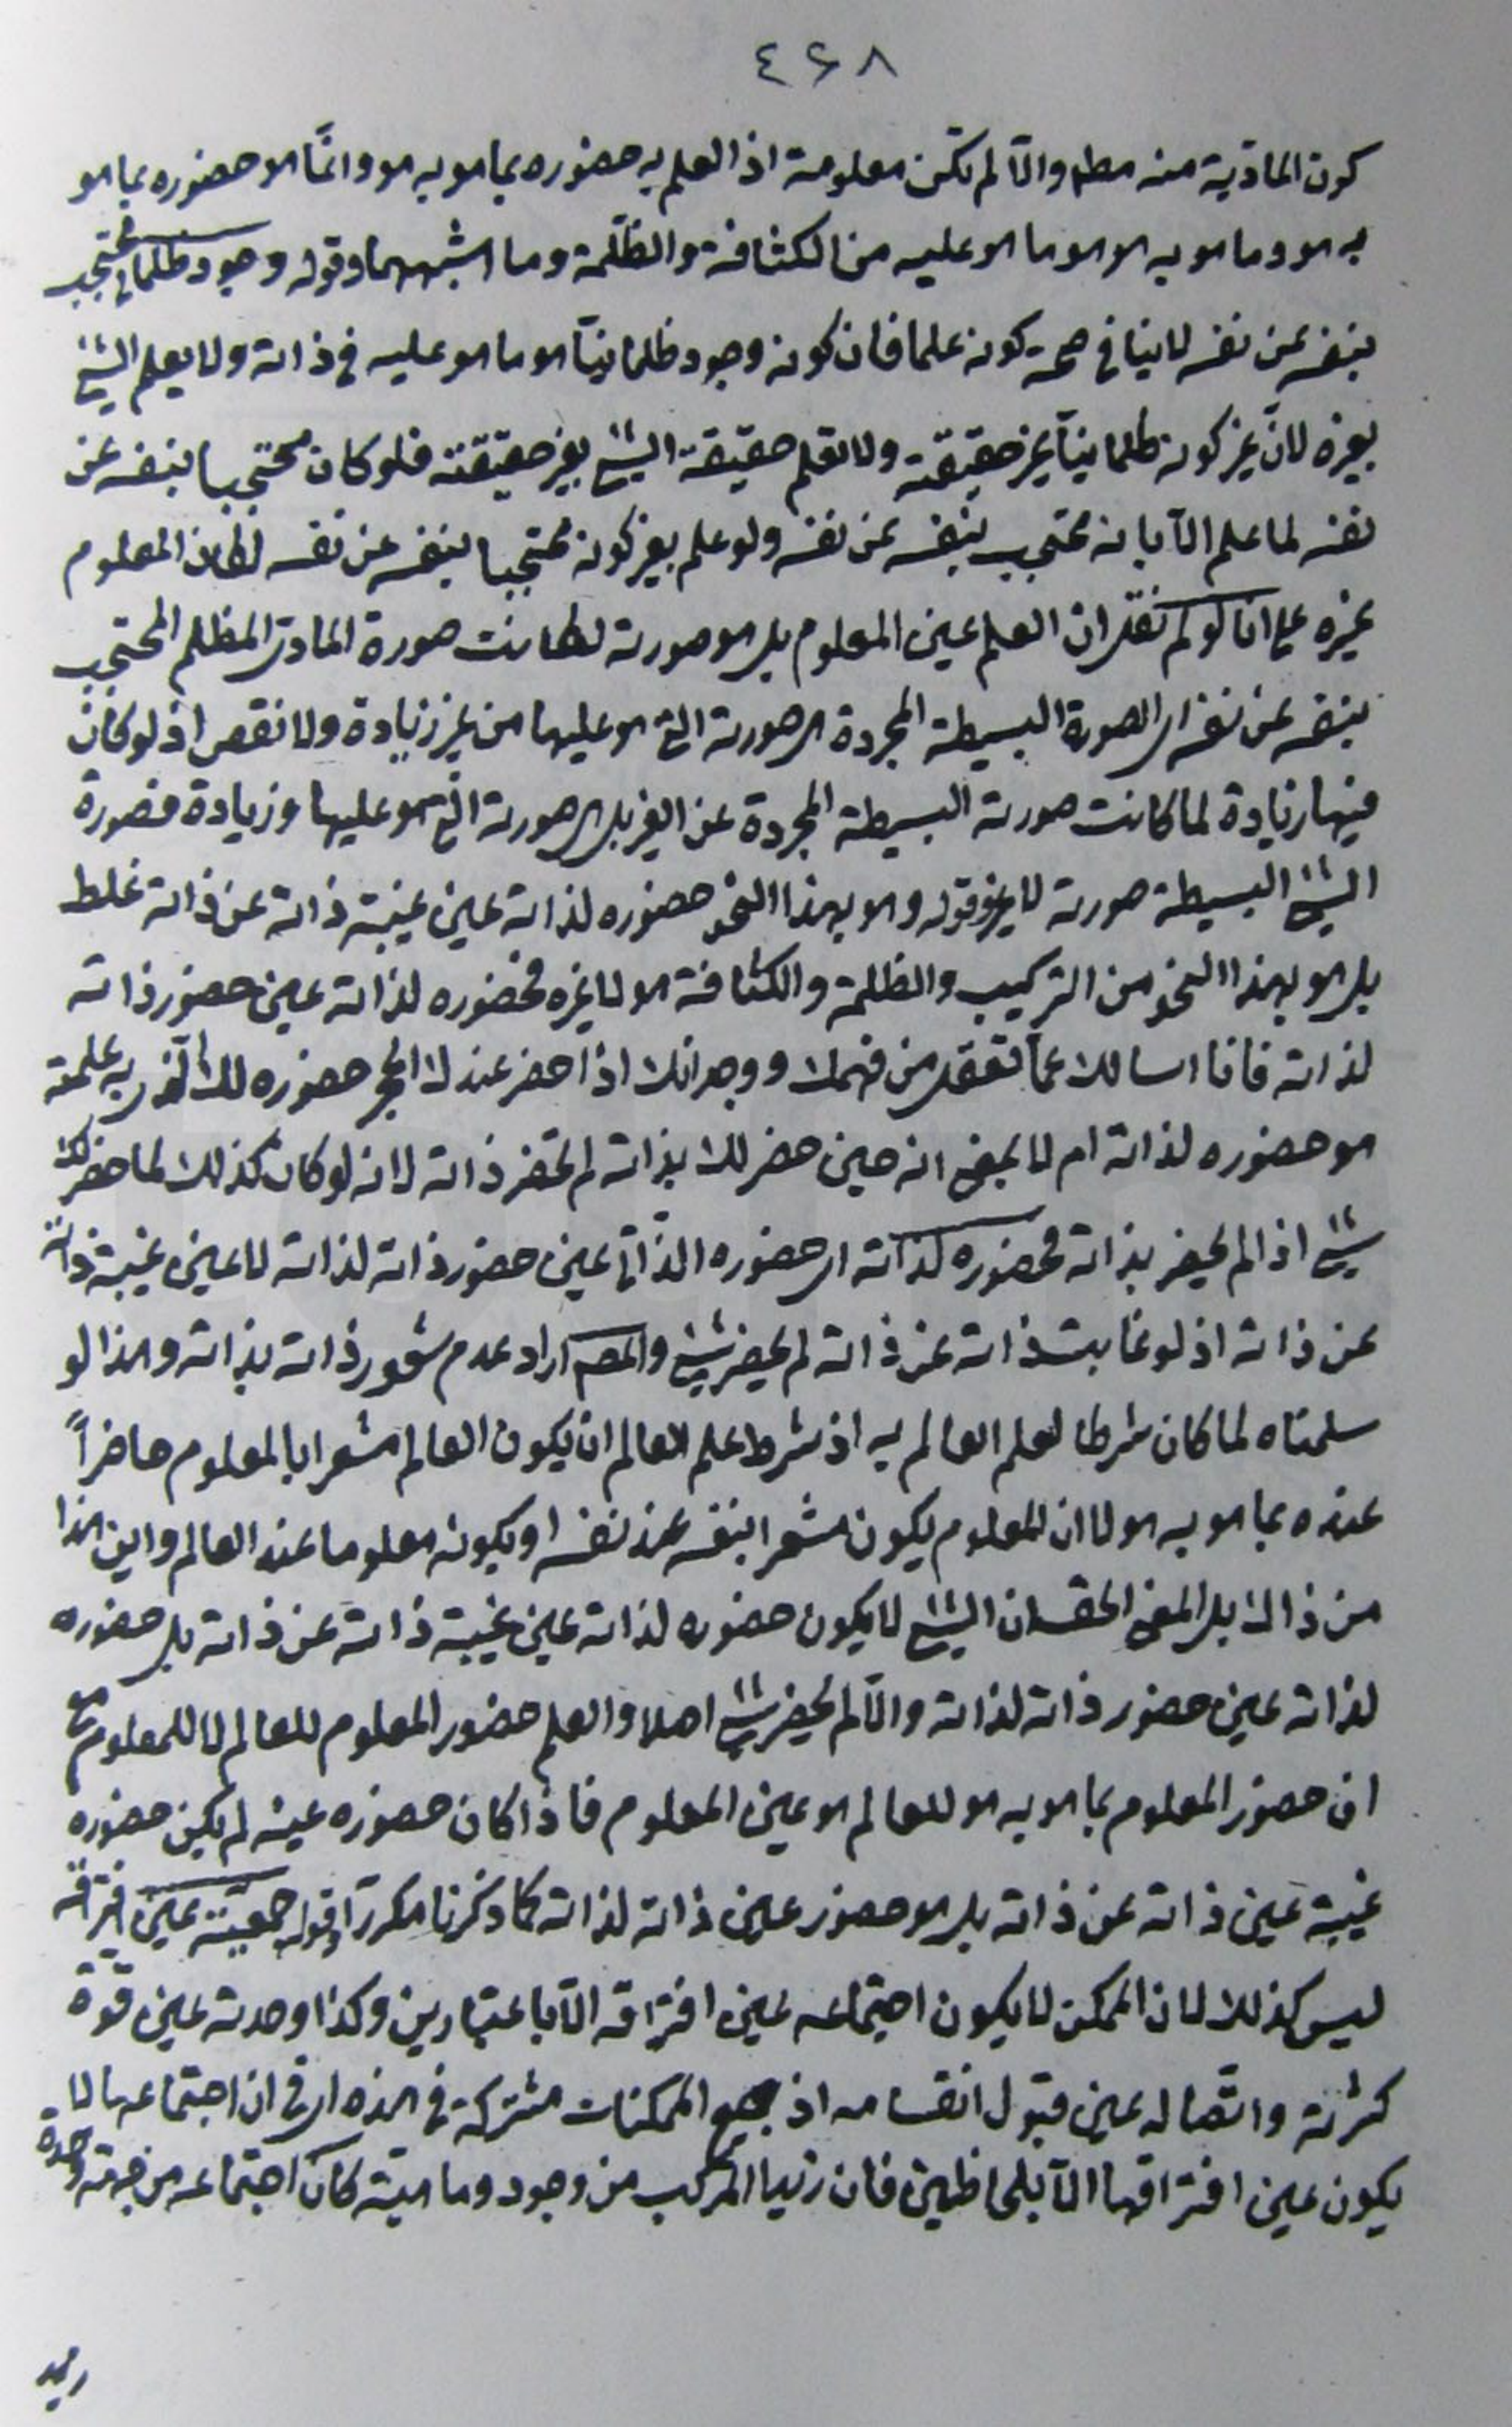 ٤٦٨
كون المادّية منه مطلم والّا لم تكن معلومة اذ العلم به حضوره بما هو به هو وانّما هو حضوره بما هو
به هو وما هو به هو هو ما هو عليه من الكثافة والظّلمة وما اشبههما وقوله وجود ظلمانى محتجب
بنفسه عن نفسه لا ينافى صحة كونه علما فان كونه وجود ظلمانيّا هو ما هو عليه فى ذاته ولا يعلم الشئ
بغيره لانّ غير كونه ظلمانيّا غير حقيقته ولا تعلم حقيقة الشئ بغير حقيقته فلو كان محتجبا بنفسه عن
نفسه لما علم الّا بانه محتجب بنفسه عن نفسه ولو علم بغير كونه محتجبا بنفسه عن نفسه لكان المعلوم
غيره على انا لو لم نقل ان العلم عين المعلوم بل هو صورته لكانت صورة المادى المظلم المحتجب
بنفسه عن نفسه اى الصورة البسيطة المجردة هى صورته التى هو عليها من غير زيادة ولا نقص اذ لو كان
فيها زيادة لما كانت صورته البسيطة المجردة عن الغير بل هى صورته التى هو عليها وزيادة فصورة
الشئ البسيطة صورته لا غير وقوله وهو بهذا النحو حضوره لذاته عين غيبة ذاته عن ذاته غلط
بل هو بهذا النحو من التركيب والظلمة والكثافة هو لا غيره فحضوره لذاته عين حضور ذاته
لذاته فانا اسالك عمّا تعقل من فهمك ووجدانك اذا حضر عندك الحجر حضوره لك الّذى به علمته
هو حضوره لذاته ام لا بمعنى انه حين حضر لك بذاته لم تحضر ذاته لانه لو كان كذلك لما حضر لك
شئ اذا لم يحضر بذاته فحضوره لذاته اى حضوره الذّاتى عين حضور ذاته لذاته لا عين غيبة ذاته
عن ذاته اذ لو غابت ذاته عن ذاته لم يحضر شئ والمصـ اراد عدم شعور ذاته بذاته وهذا لو
سلمناه لما كان شرطا لعلم العالم به اذ شرط علم العالم ان يكون العالم مشعرا بالمعلوم حاضراً
عنده بما هو به هو لا ان المعلوم يكون مشعرا بنفسه عند نفسه او يكون معلوما عند العالم واين هذا
من ذاك بل المعنى الحق ان الشئ لا يكون حضوره لذاته عين غيبة ذاته عن ذاته بل حضوره
لذاته عين حضور ذاته لذاته والّا لم يحضر شئ اصلا والعلم حضور المعلوم للعالم لا للمعلوم مع
ان حضور المعلوم بما هو به هو للعالم هو عين المعلوم فاذا كان حضوره عينه لم يكن حضوره
غيبة عين ذاته عن ذاته بل هو حضور عين ذاته لذاته كما ذكرنا مكررّا وقوله جمعيّته عين افتراقه
ليس كذلك لان الممكن لا يكون اجتماعه عين افتراقه الّا باعتبارين وكذا وحدته عين قوّة
كثرته واتّصاله عين قبول انقسامه اذ جميع الممكنات مشتركة فى هذه اى فى ان اجتماعها لا
يكون عين افتراقها الّا بلحاظين فان زيدا المركب من وجود وماهيّة كان اجتماعه من جهة واحدة